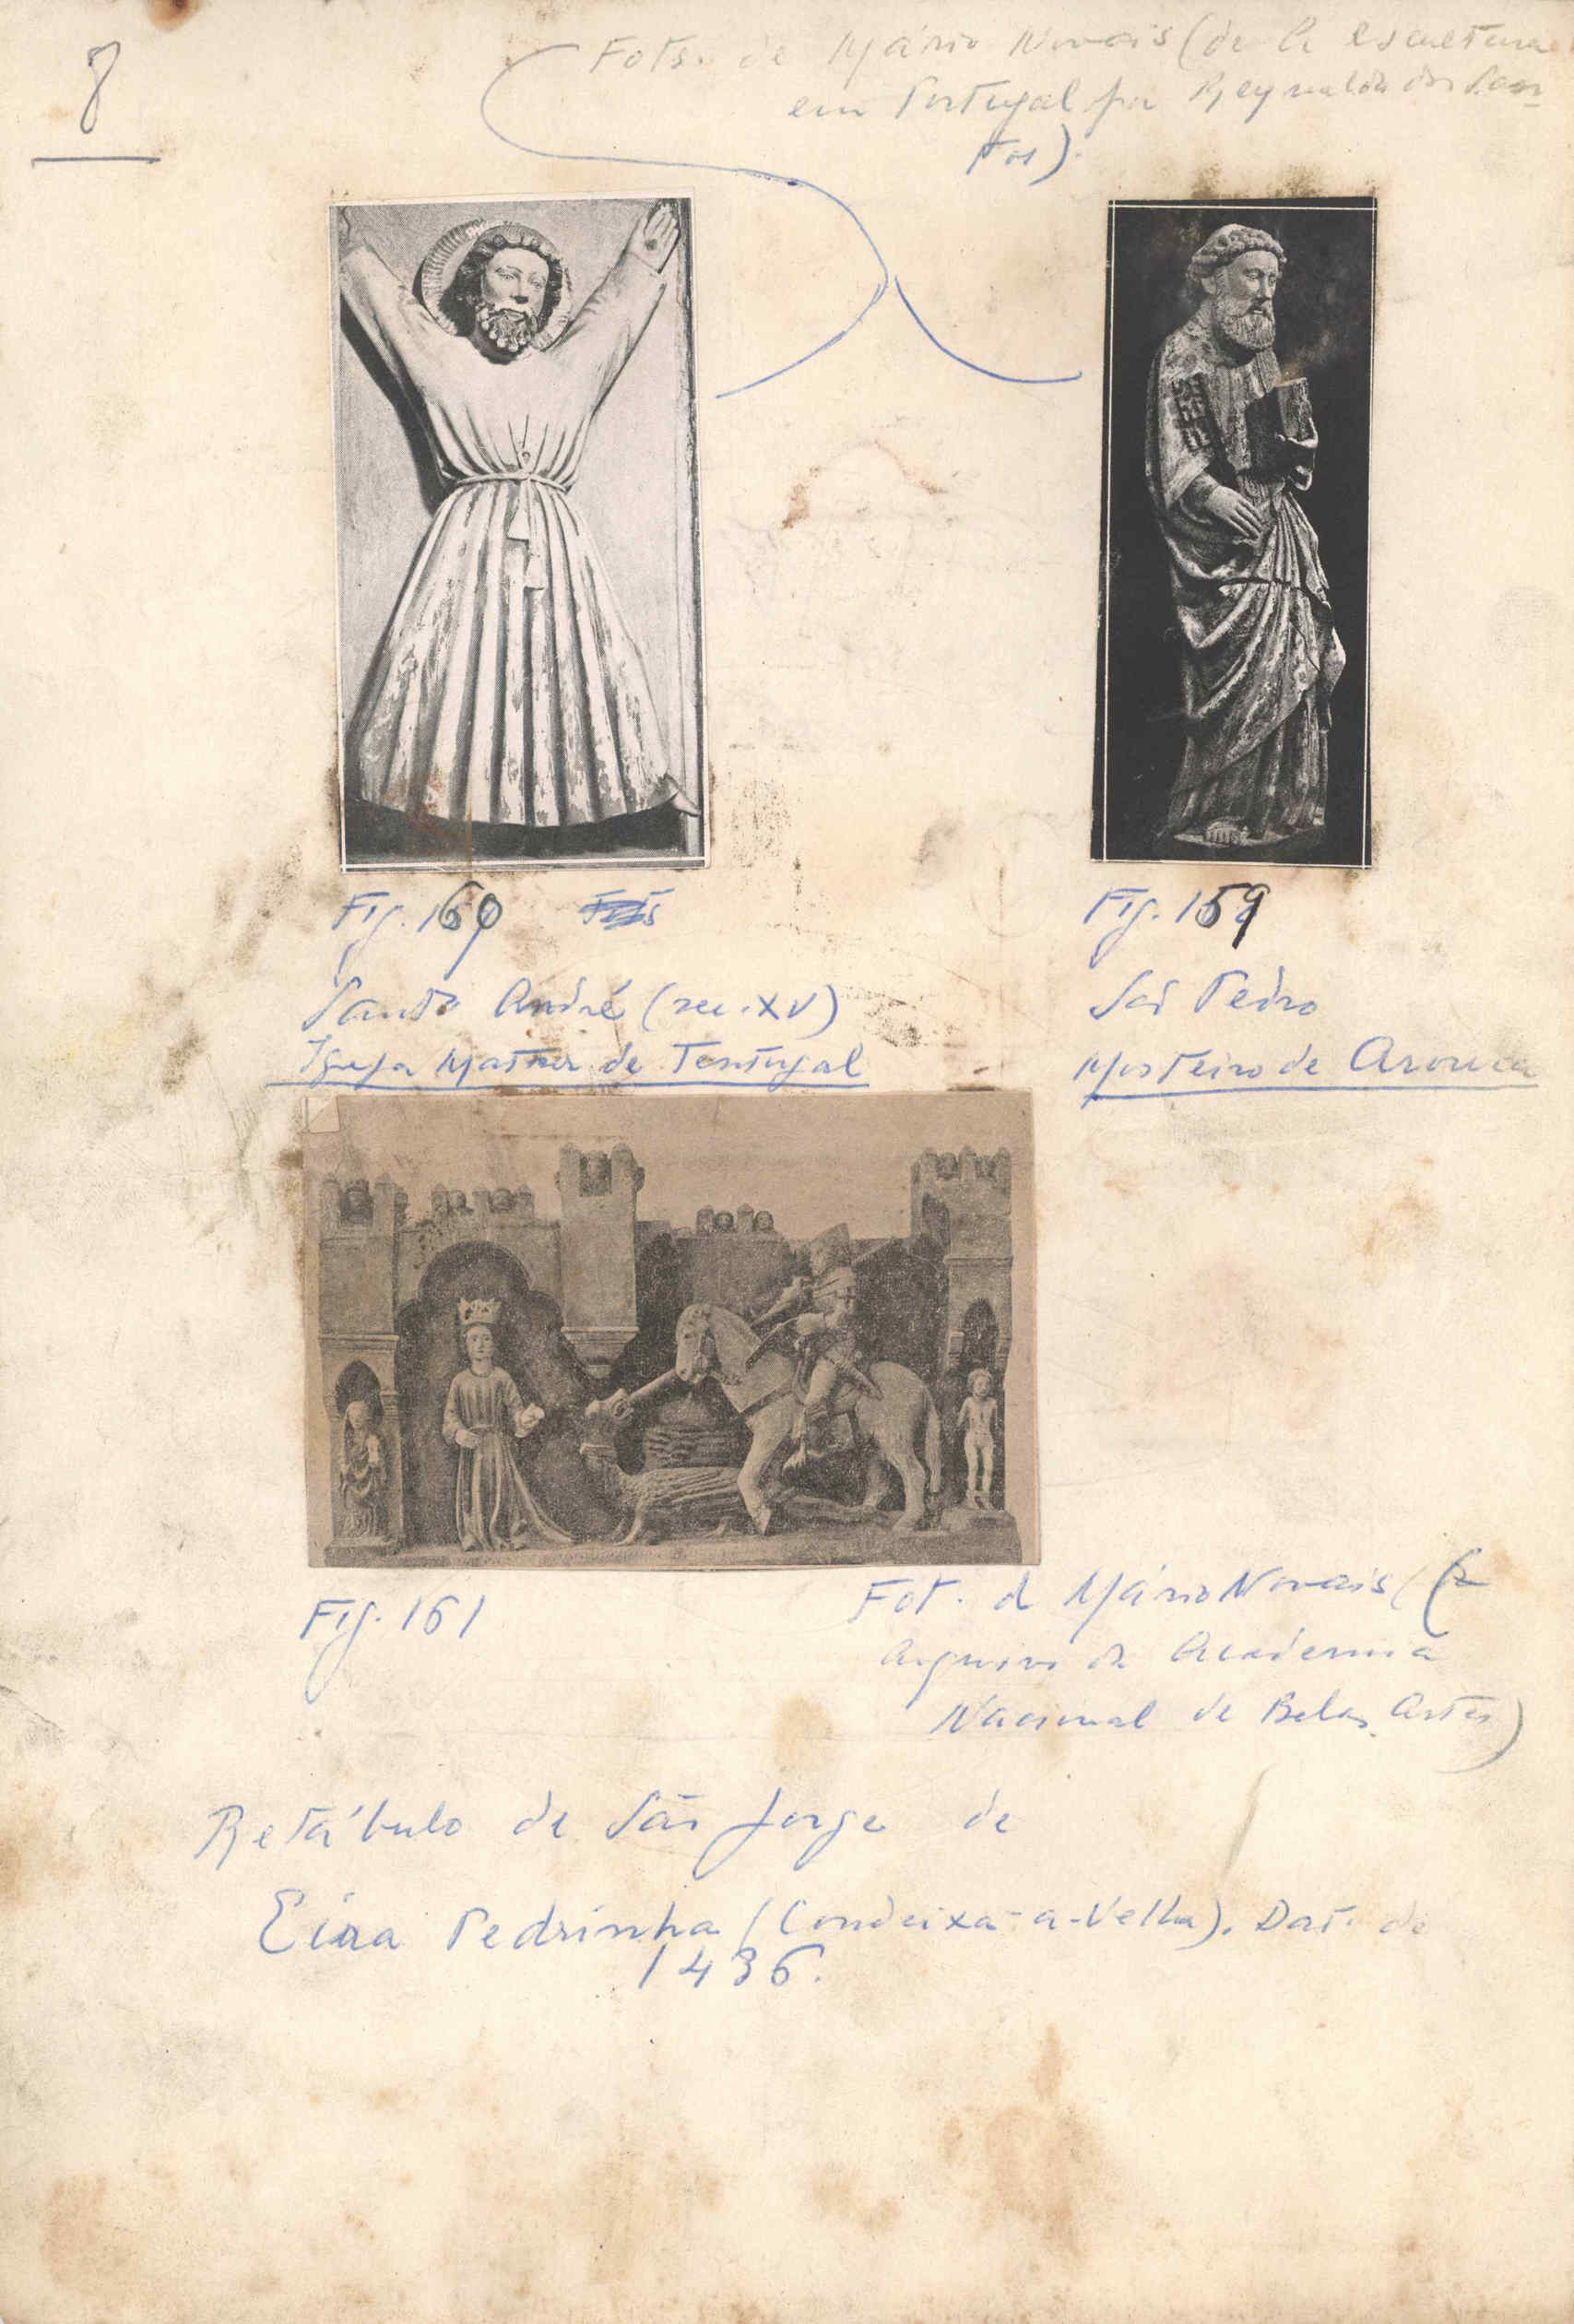 8
Fots. de Mário Novais (de A escultura
em Portugal por Reynaldo dos San-
tos).
Fig. 160
Fig. 159
Santo André (sec. XV)
Igreja Matriz de Tentúgal
São Pedro
Mosteiro de Arouca
Fig. 161
Fot. d Mário Novais (
Arquivo da Academia
Nacional de Belas Artes)
Retábulo de São Jorge de
Eira Pedrinha (Condeixa-a-Velha). Dat. de
1436.